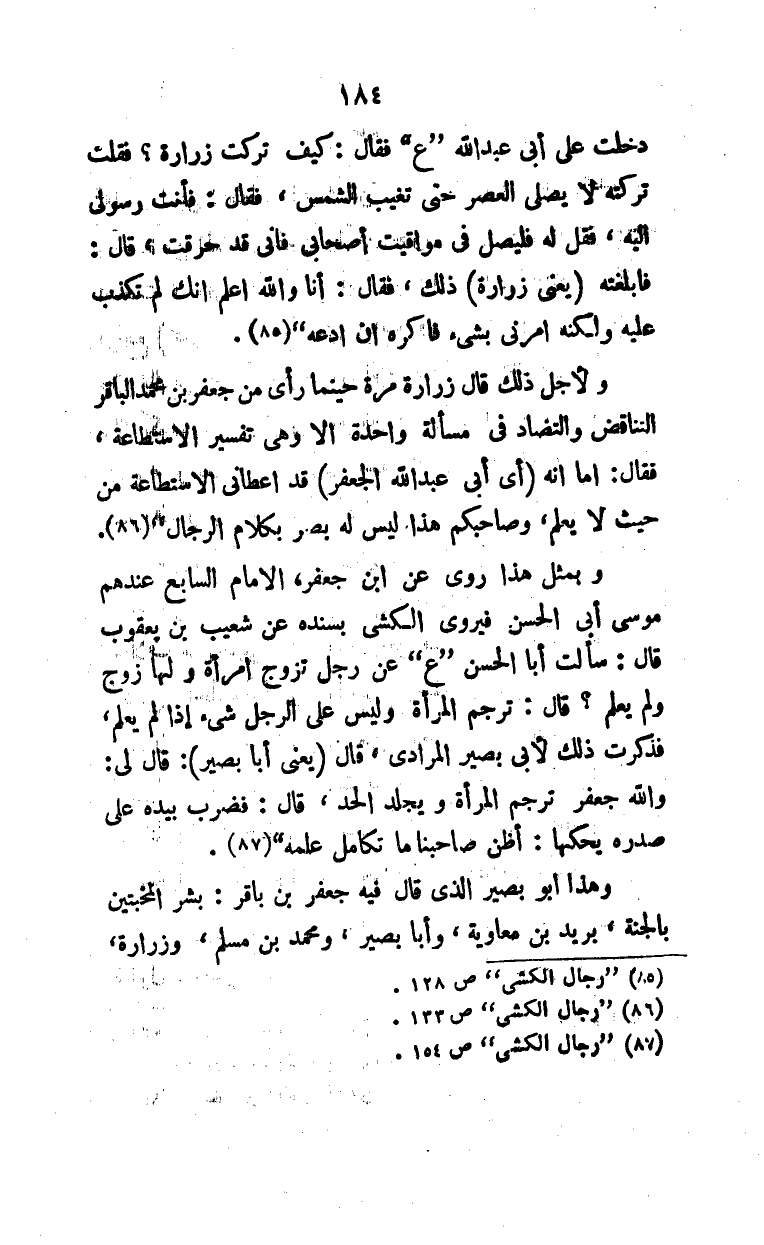 ١٨٤
دخلت على أبى عبدالله ”ع“ فقال : كيف تركت زرارة ؟ فقلت
تركته لا يصلى العصر حتى تغيب الشمس ، فقال : فأنت رسولى
اليه ، فقل له فليصل فى مواقيت أصحابى فانى قد حرقت ، قال :
فابلغته (يعنى زرارة) ذلك ، فقال : أنا والله اعلم انك لم تكذب
عليه ولكنه امرنى بشىء فاكره ان ادعه“(٨٥) .
و لأجل ذلك قال زرارة مرة حينما رأى من جعفر بن محمد الباقر
التناقض والتضاد فى مسألة واحدة الا وهى تفسير الاستطاعة ،
فقال: اما انه (أى أبى عبدالله الجعفر) قد اعطانى الاستطاعة من
حيث لا يعلم، وصاحبكم هذا ليس له بصر بكلام الرجال“(٨٦).
و بمثل هذا روى عن ابن جعفر، الامام السابع عندهم
موسى أبى الحسن فيروى الكشى بسنده عن شعيب بن يعقوب
قال : سألت أبا الحسن ”ع“ عن رجل تزوج امرأة و لها زوج
ولم يعلم ؟ قال : ترجم المرأة وليس على الرجل شىء إذا لم يعلم،
فذكرت ذلك لأبى بصير المرادى ، قال (يعنى أبا بصير): قال لى:
والله جعفر ترجم المرأة و يجلد الحد ، قال : فضرب بيده على
صدره يحكها : أظن صاحبنا ما تكامل علمه“(٨٧) .
وهذا ابو بصير الذى قال فيه جعفر بن باقر : بشر المخبتين
بالجنة ، بريد بن معاوية ، وأبا بصير ، ومحمد بن مسلم ، وزرارة،
(٨٥) ”رجال الكشى“ ص ١٢٨ .
(٨٦) ”رجال الكشى“ ص ١٣٣ .
(٨٧) ”رجال الكشى“ ص ١٥٤ .